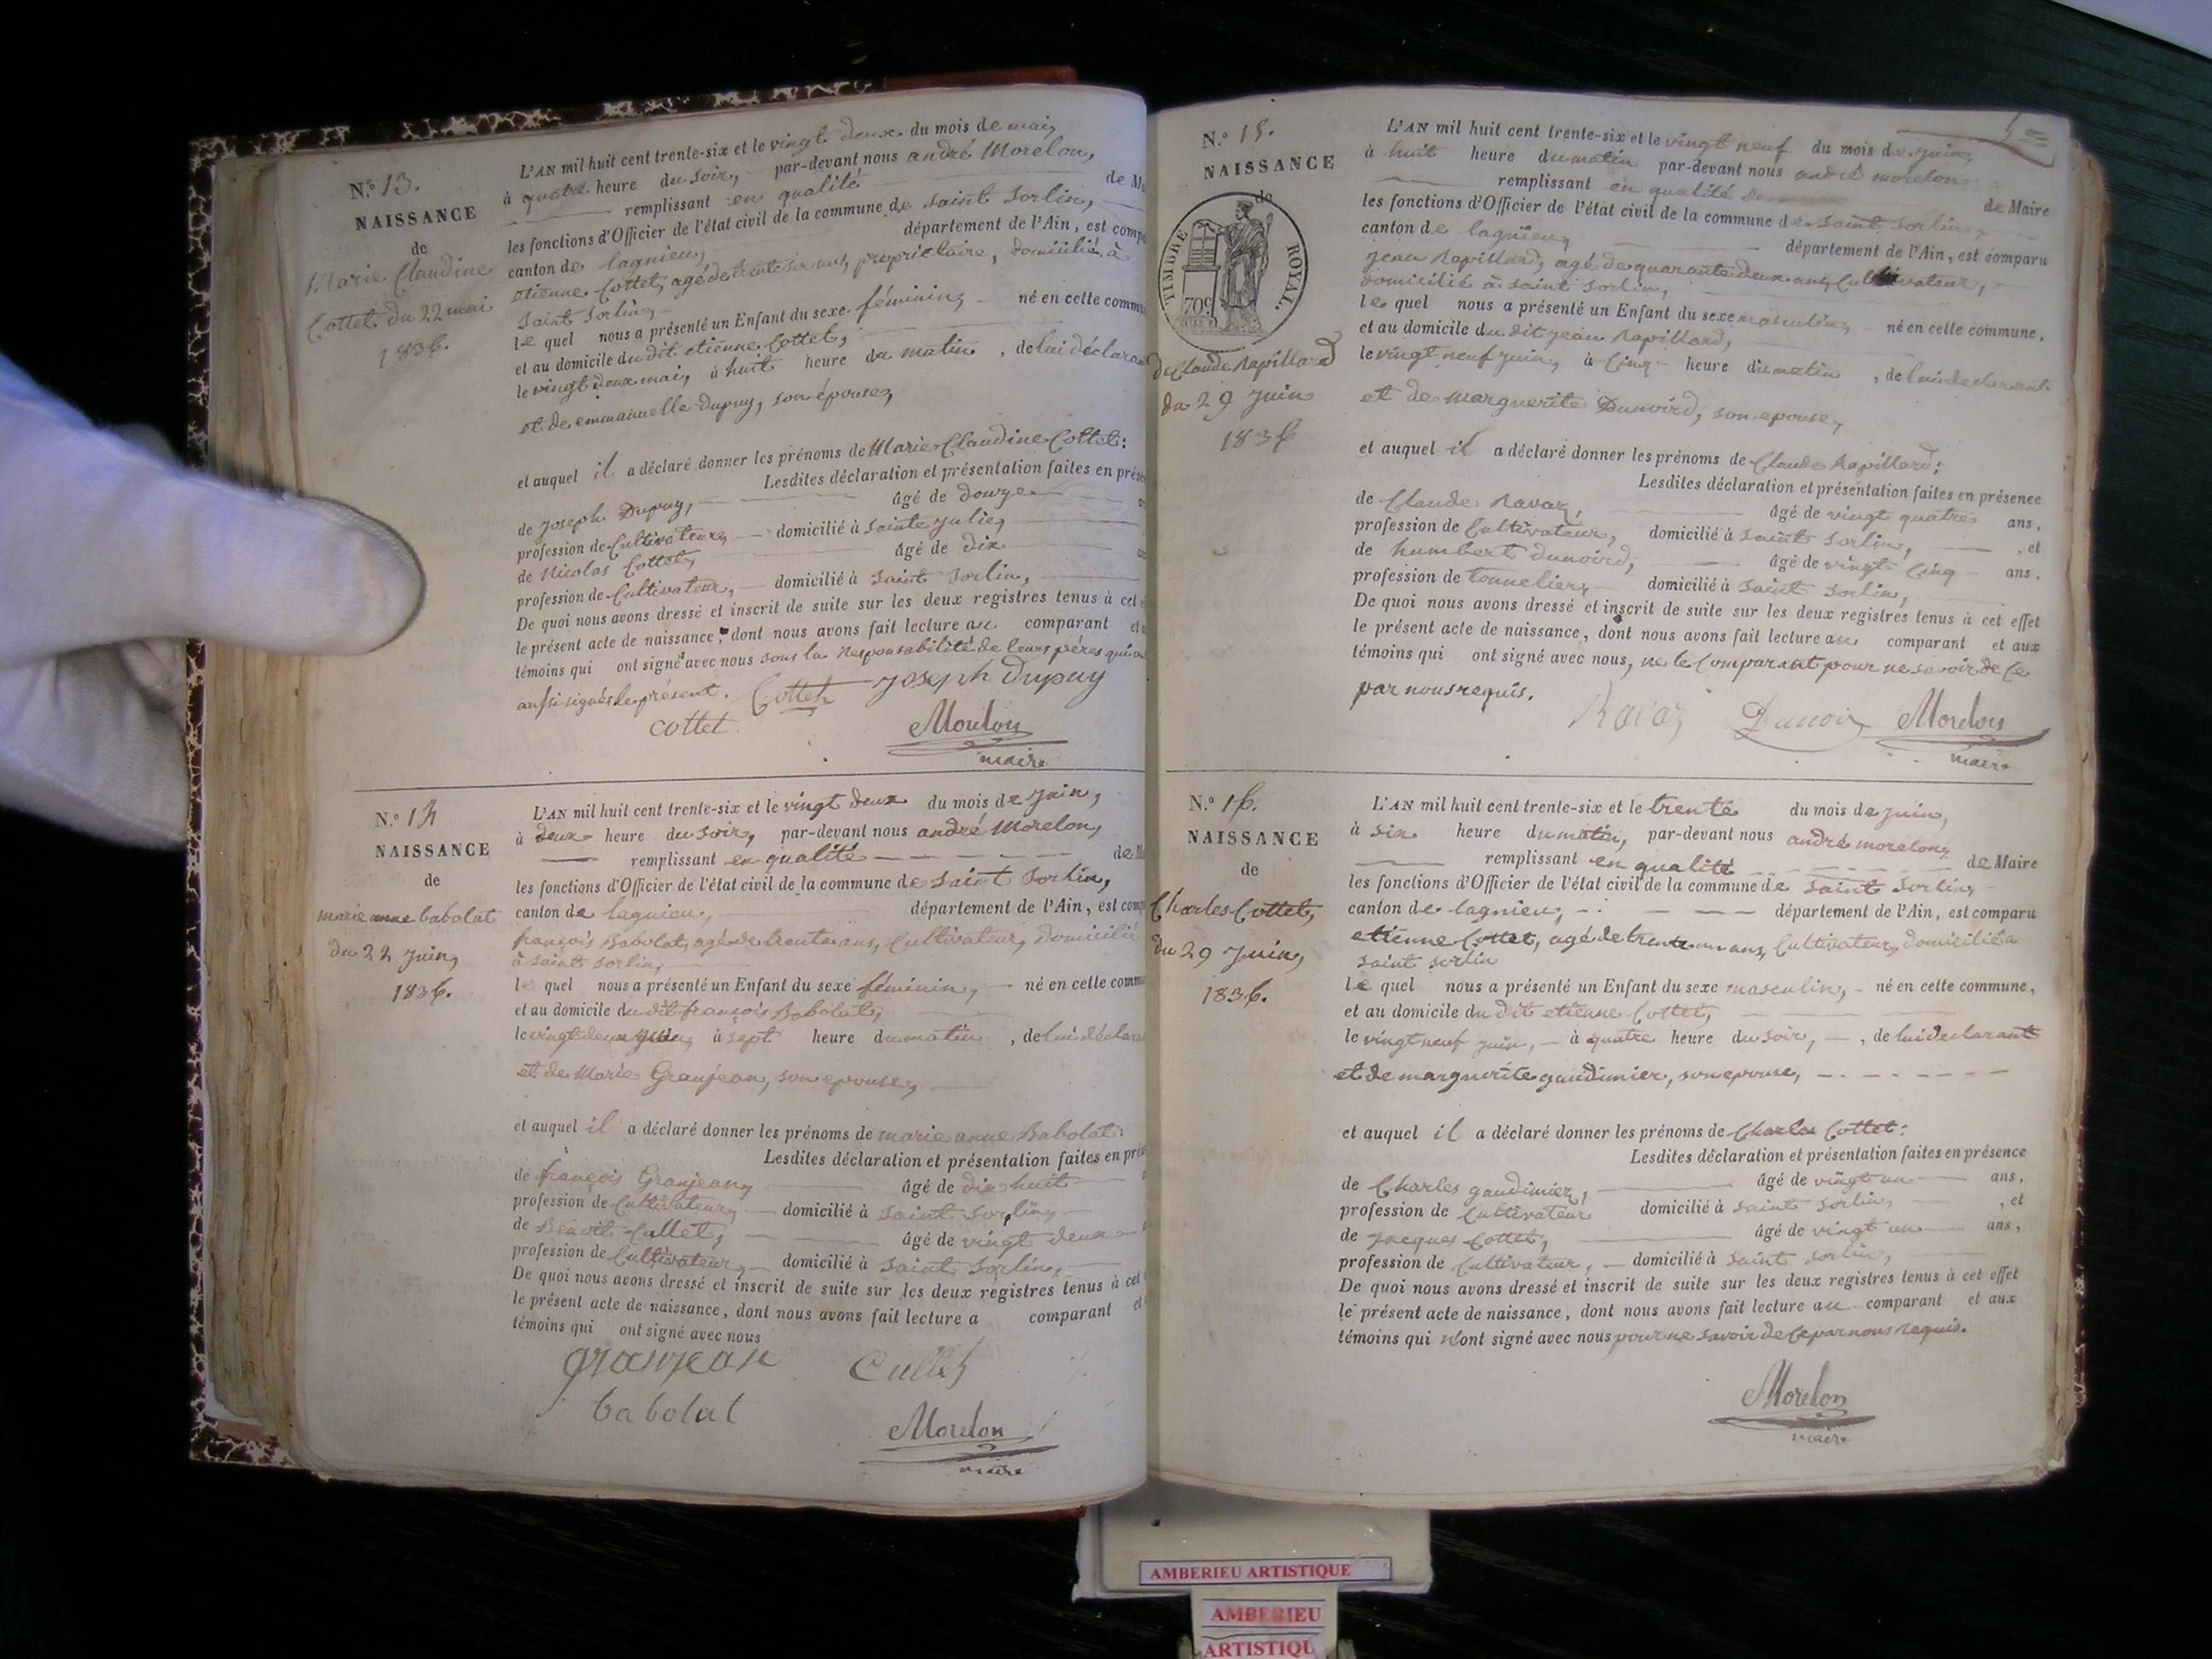 N.º 13.
NAISSANCE
de
Marie Claudine
Cottet du 22 mai
1836.
L'AN mil huit cent trente-six et le vingt deux du mois de mai,
à quatre heure du soir, par-devant nous andré Morelon,
remplissant en qualité de
les fonctions d'Officier de l'état civil de la commune de saint Sorlin,
canton de lagnieu, département de l'Ain, est
etienne Cottet, agé de trente six ans, propriétaire, domicilié à
saint Sorlin,
le quel nous a présenté un Enfant du sexe féminin, né en cette
et au domicile du dit etienne Cottet,
le vingt deux mai, à huit heure du matin, de lui
et de emmanuelle Dupuy, son épouse,
et auquel il a déclaré donner les prénoms de Marie Claudine Cottet:
Lesdites déclaration et présentation faites en
de Joseph Dupuy, âgé de douze
profession de Cultivateur, domicilié à Sainte julie,
de Nicolas Cottet, âgé de dix
profession de Cultivateur, domicilié à saint Sorlin,
De quoi nous avons dressé et inscrit de suite sur les deux registres tenus à cet
le présent acte de naissance, dont nous avons fait lecture au comparant
témoins qui ont signé avec nous sous la responsabilité de leurs pères qui
aussi signés le présent. Cottet Joseph Dupuy
cottet Morelon
maire
N.º 14
NAISSANCE
de
marie anne babolat
du 22 Juin,
1836.
L'AN mil huit cent trente-six et le vingt deux du mois de Juin,
à deux heure du soir, par-devant nous andré Morelon,
remplissant en qualité de
les fonctions d'Officier de l'état civil de la commune de saint Sorlin,
canton de lagnieu, département de l'Ain, est
françois Babolat, agé de trente ans, Cultivateur, domicilié
à saint Sorlin,
le quel nous a présenté un Enfant du sexe féminin, né en cette
et au domicile du dit françois Babolat,
le vingt deux juin, à sept heure du matin, de lui
et de Marie Granjean, son epouse,
et auquel il a déclaré donner les prénoms de marie anne Babolat:
Lesdites déclaration et présentation faites en
de françois Granjean, âgé de dix huit
profession de Cultivateur, domicilié à saint Sorlin,
de Benoit Cullet, âgé de vingt deux
profession de Cultivateur, domicilié à saint Sorlin,
De quoi nous avons dressé et inscrit de suite sur les deux registres tenus à cet
le présent acte de naissance, dont nous avons fait lecture a comparant
témoins qui ont signé avec nous
granjean Cullet
babolat
Morelon
maire
N.º 15.
NAISSANCE
de
TIMBRE ROYAL.
70c
de Claude Rapillard
du 29 Juin
1836
L'AN mil huit cent trente-six et le vingt neuf du mois de juin,
à huit heure du matin par-devant nous andré morelon
remplissant en qualité de Maire
les fonctions d'Officier de l'état civil de la commune de saint Sorlin,
canton de lagnieu, département de l'Ain, est comparu
jean Rapillard, agé de quarante deux ans, Cultivateur,
domicilié à saint sorlin,
le quel nous a présenté un Enfant du sexe masculin, né en cette commune,
et au domicile du dit jean Rapillard,
le vingt neuf juin, à Cinq heure du matin, de lui declarant
et de marguerite Dunoird, son epouse,
et auquel il a déclaré donner les prénoms de Claude Rapillard:
Lesdites déclaration et présentation faites en présence
de Claude Ravaz, âgé de vingt quatre ans,
profession de Cultivateur, domicilié à saint Sorlin, , et
de humbert dunoird, âgé de vingt Cinq ans,
profession de tonnelier, domicilié à saint Sorlin,
De quoi nous avons dressé et inscrit de suite sur les deux registres tenus à cet effet
le présent acte de naissance, dont nous avons fait lecture au comparant et aux
témoins qui ont signé avec nous, ne le Comparant pour ne savoir de Ce
par nous requis.
Ravaz Dunoir Morelon
maire
N.º 16.
NAISSANCE
de
Charles Cottet,
du 29 Juin,
1836.
L'AN mil huit cent trente-six et le trente du mois de juin,
à six heure du matin, par-devant nous andré morelon,
remplissant en qualité de Maire
les fonctions d'Officier de l'état civil de la commune de saint Sorlin,
canton de lagnieu, département de l'Ain, est comparu
etienne Cottet, agé de trente un ans, Cultivateur, domicilié à
saint sorlin
le quel nous a présenté un Enfant du sexe masculin, né en cette commune,
et au domicile du dit etienne Cottet,
le vingt neuf juin, à quatre heure du soir, , de lui declarant
et de marguerite gaudimier, son epouse,
et auquel il a déclaré donner les prénoms de Charles Cottet:
Lesdites déclaration et présentation faites en présence
de Charles gaudimier, âgé de vingt un ans,
profession de Cultivateur domicilié à saint Sorlin, , et
de Jacques Cottet, âgé de vingt un ans,
profession de Cultivateur, domicilié à saint Sorlin,
De quoi nous avons dressé et inscrit de suite sur les deux registres tenus à cet effet
le présent acte de naissance, dont nous avons fait lecture au comparant et aux
témoins qui n'ont signé avec nous pour ne savoir de Ce par nous requis.
Morelon
maire
AMBERIEU ARTISTIQUE
AMBERIEU
ARTISTIQU